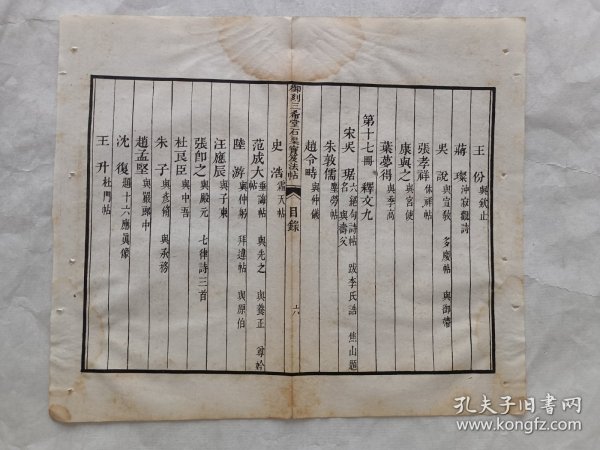 王份 與欽止
蔣璨 沖寂觀詩
吳說 與宣教 多慶帖 與御帶
張孝祥 休祥帖
康與之 與宮使
葉夢得 與季高
第十七冊 釋文九
宋吳琚 六絕句詩帖 跋李氏誥 焦山題名 與壽父
朱敦儒 塵勞帖
趙令畤 與仲儀
御刻三希堂石渠寶笈法帖 目錄 六
史浩 霜天帖
范成大 垂誨帖 與先之 與養正 尊妗
陸游 與仲躬 拜違帖 與原伯
汪應辰 與子東
張即之 與殿元 七律詩三首
杜良臣 與中吾
朱子 與彥脩 與承務
趙孟堅 與嚴郎中
沈復 題十六應真像
王升 杜門帖
孔夫子旧书网
book.kongfz.com